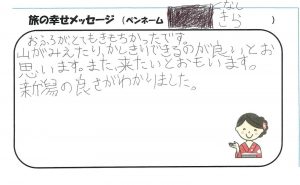 旅の幸せメッセージ (ペンネーム となし
きら )
おふろがとてもきもちかったです。
山がみえたり、かしきりできるのが良いとお
思います。また、来たいとおもいます。
新潟の良さがわかりました。